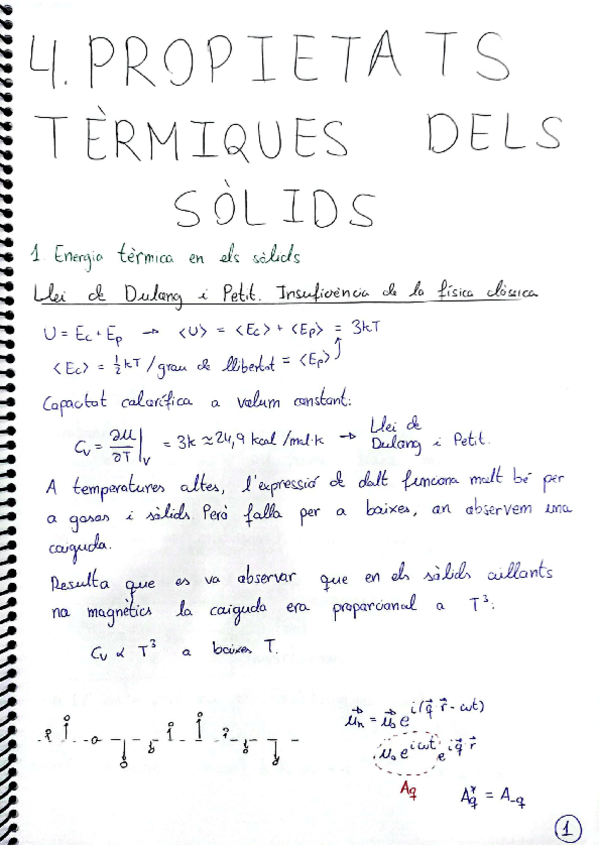 4. PROPIETATS
TÈRMIQUES DELS
SÒLIDS
1. Energia tèrmica en els sòlids
Llei de Dulong i Petit. Insuficiència de la física clàssica
U = Ec + Ep → <U> = <Ec> + <Ep> = 3kT
<Ec> = 1/2 kT / grau de llibertat = <Ep>
Capacitat calorífica a volum constant:
Cv = ∂U/∂T |v = 3k ≈ 24,9 kcal/mol·k → Llei de Dulong i Petit.
A temperatures altes, l'expressió de dalt funciona molt bé per
a gasos i sòlids. Però falla per a baixes, on observem una
caiguda.
Resulta que es va observar que en els sòlids aïllants
no magnètics la caiguda era proporcional a T³:
Cv ∝ T³ a baixes T.
u⃗n = u⃗o e^i(q⃗·r⃗ - ωt)
uo e^iωt e^iq⃗·r⃗
Aq
Aq* = A-q
1